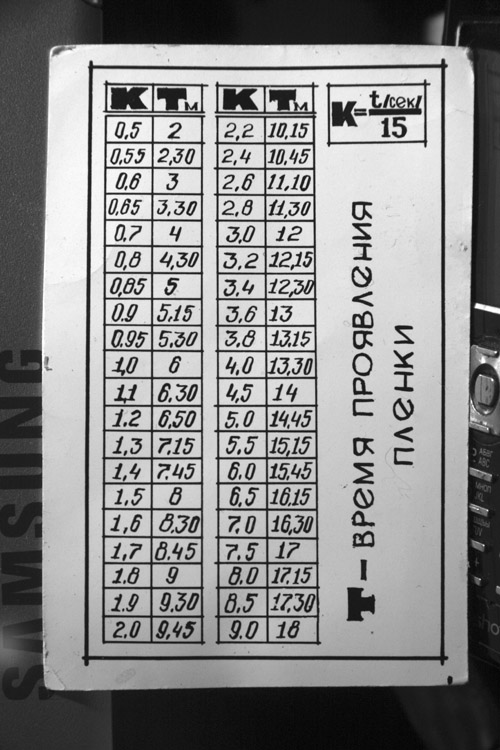 К Тм К Тм К=t/сек/15
0,5 2 2,2 10,15
0,55 2,30 2,4 10,45
0,6 3 2,6 11,10
0,65 3,30 2,8 11,30
0,7 4 3,0 12
0,8 4,30 3,2 12,15
0,85 5 3,4 12,30
0.9 5.15 3,6 13
0.95 5.30 3,8 13.15
1,0 6 4,0 13,30
1,1 6,30 4,5 14
1.2 6,50 5.0 14,45
1,3 7.15 5.5 15,15
1,4 7.45 6.0 15,45
1.5 8 6,5 16.15
1,6 8,30 7.0 16,30
1,7 8.45 7.5 17
1.8 9 8,0 17.15
1.9 9,30 8,5 17,30
2.0 9,45 9.0 18
Т – ВРЕМЯ ПРОЯВЛЕНИЯ
ПЛЕНКИ
SAMSUNG